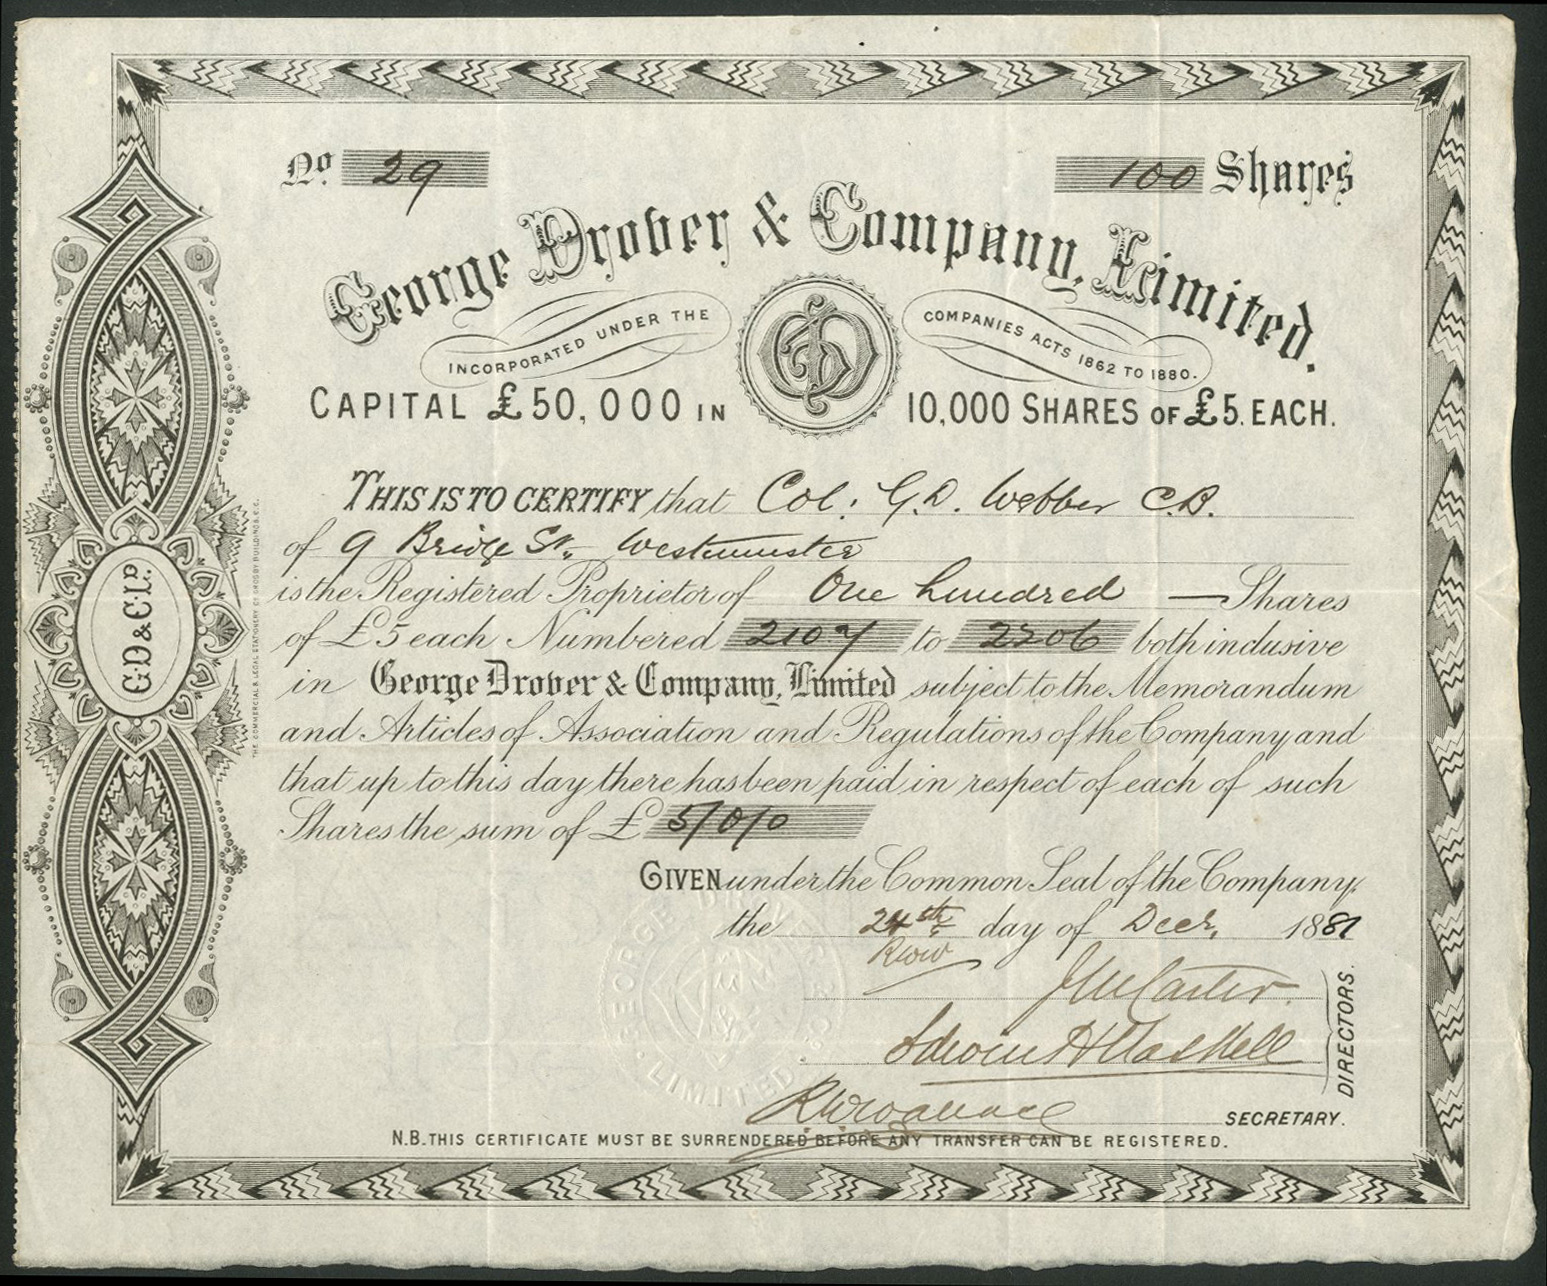 No. 29
100 Shares
George Drover & Company, Limited.
INCORPORATED UNDER THE COMPANIES ACTS 1862 TO 1880.
GD
CAPITAL £50,000 IN 10,000 SHARES OF £5. EACH.
THIS IS TO CERTIFY that Col: G.D. Webber C.B.
of 9 Bridge St. Westminster
is the Registered Proprietor of One hundred — Shares
of £5 each Numbered 2107 to 2206 both inclusive
in George Drover & Company, Limited subject to the Memorandum
and Articles of Association and Regulations of the Company and
that up to this day there has been paid in respect of each of such
Shares the sum of £ 5/0/0
GIVEN under the Common Seal of the Company,
the 24th day of Decr. 1881
RWW
DIRECTORS.
SECRETARY.
N.B. THIS CERTIFICATE MUST BE SURRENDERED BEFORE ANY TRANSFER CAN BE REGISTERED.
G.D & Co. LD.
THE COMMERCIAL & LEGAL STATIONERY CO CROSBY BUILDINGS, E.C.
GEORGE DROVER & CO. LIMITED